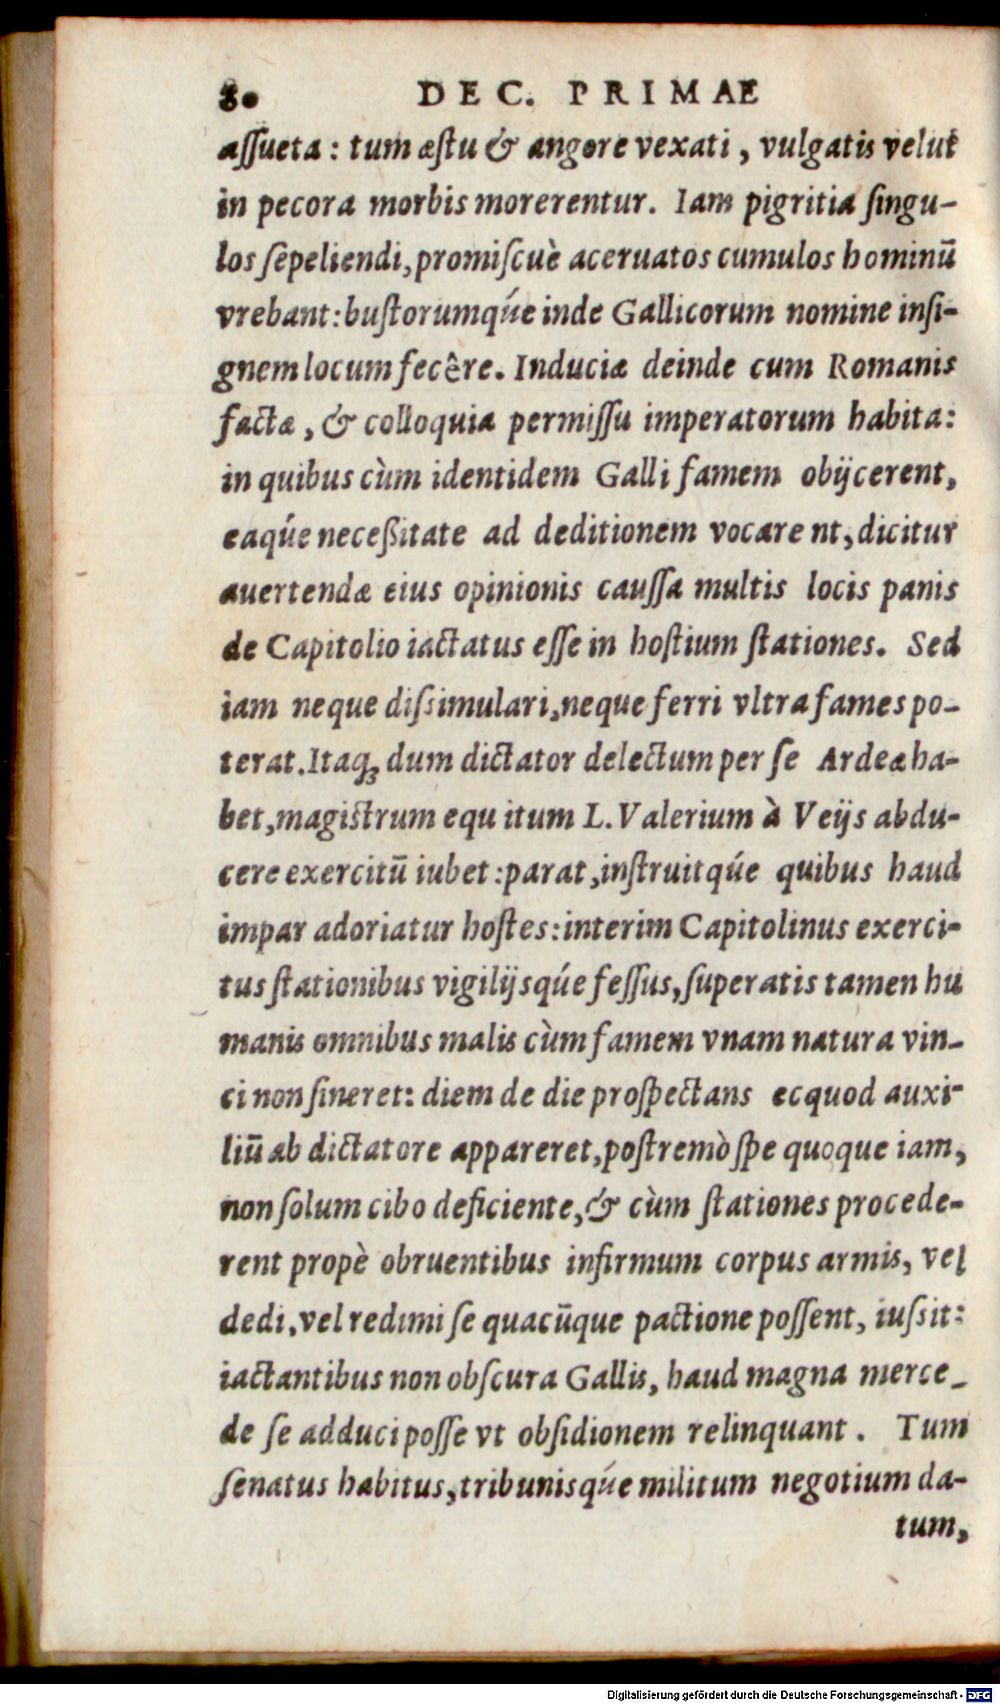 80 DEC. PRIMAE
assueta: tum æstu & angore vexati, vulgatis velut
in pecora morbis morerentur. Iam pigritia singu-
los sepeliendi, promiscuè aceruatos cumulos hominū
vrebant: bustorumqúe inde Gallicorum nomine insi-
gnem locum fecêre. Induciæ deinde cum Romanis
factæ, & colloquia permissu imperatorum habita:
in quibus cùm identidem Galli famem obijcerent,
eaqúe neceßitate ad deditionem vocare nt, dicitur
auertendæ eius opinionis caussa multis locis panis
de Capitolio iactatus esse in hostium stationes. Sed
iam neque dissimulari, neque ferri vltra fames po-
terat. Itaqꝫ dum dictator delectum per se Ardeæ ha-
bet, magistrum equ itum L. Valerium à Veijs abdu-
cere exercitū iubet: parat, instruitqúe quibus haud
impar adoriatur hostes: interim Capitolinus exerci-
tus stationibus vigilijsqúe fessus, superatis tamen hu
manis omnibus malis cùm famem vnam natura vin-
ci non sineret: diem de die prospectans ecquod auxi-
liū ab dictatore appareret, postremò spe quoque iam,
non solum cibo deficiente, & cùm stationes procede-
rent propè obruentibus infirmum corpus armis, vel
dedi, vel redimi se quacūque pactione possent, iussit:
iactantibus non obscura Gallis, haud magna merce-
de se adduci posse vt obsidionem relinquant. Tum
senatus habitus, tribunisqúe militum negotium da-
tum,
Digitalisierung gefördert durch die Deutsche Forschungsgemeinschaft - DFG